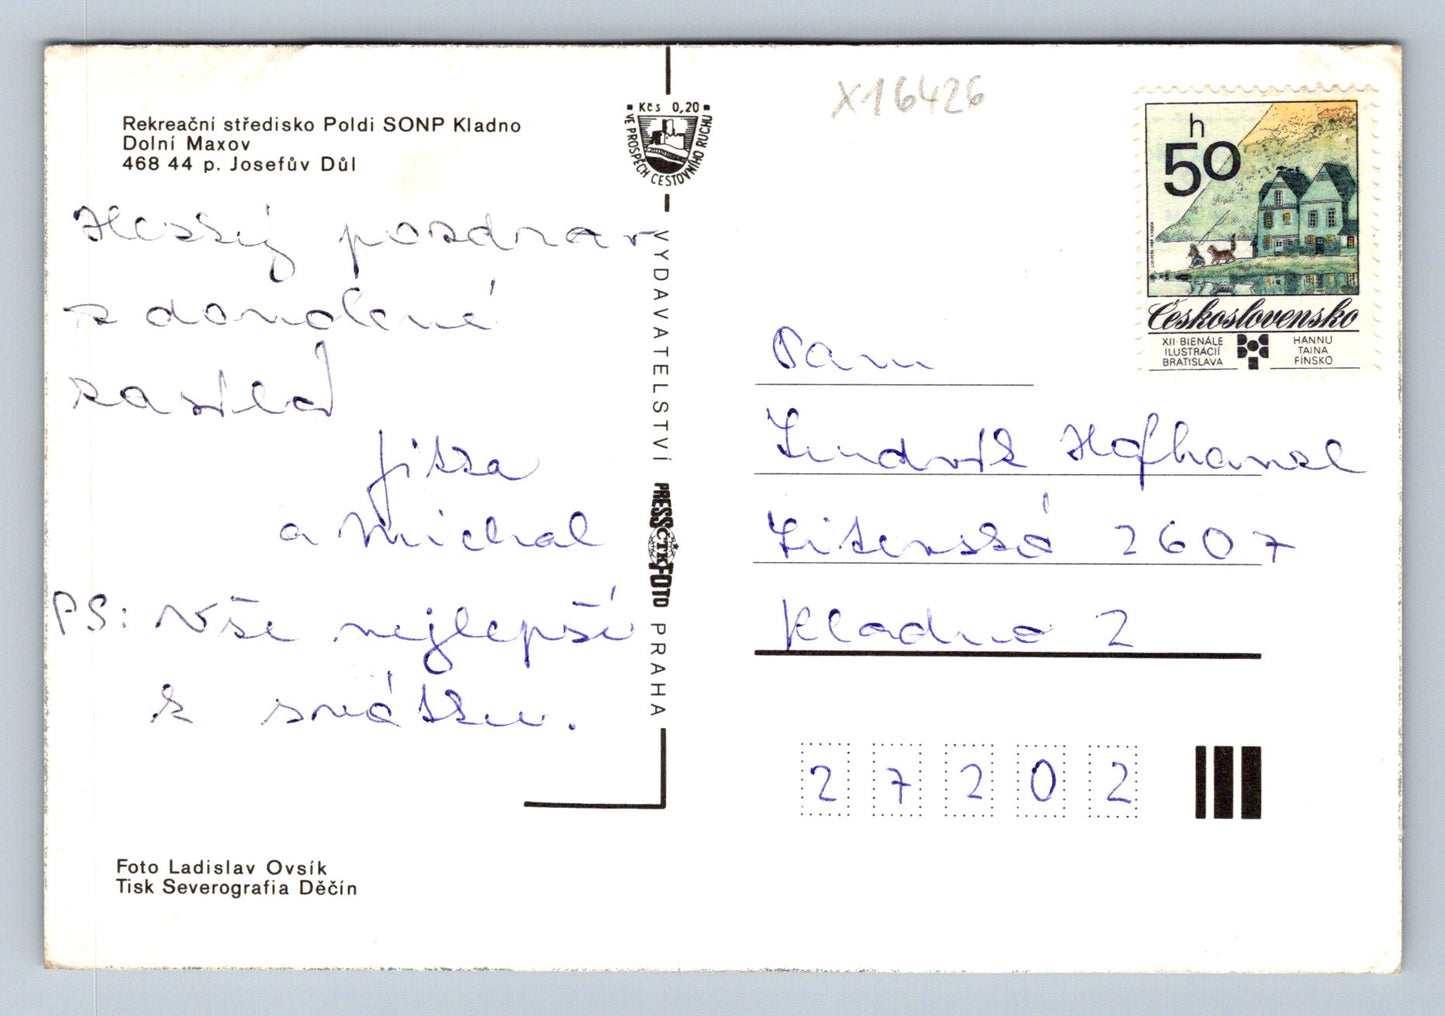 Rekreační středisko Poldi SONP Kladno
Dolní Maxov
468 44 p. Josefův Důl
Hezký pozdrav
z dovolené
zasílá
Jitka
a Michal
PS: Vše nejlepší
k svátku.
Foto Ladislav Ovsík
Tisk Severografia Děčín
Kčs 0,20
VE PROSPĚCH CESTOVNÍHO RUCHU
VYDAVATELSTVÍ PRESSFOTO PRAHA
ČTK
X16426
h
50
Československo
XII. BIENÁLE
ILUSTRÁCIÍ
BRATISLAVA
HANNU
TAINA
FÍNSKO
Pan
Ludvík Hofhansl
Litevská 2607
Kladno 2
27202